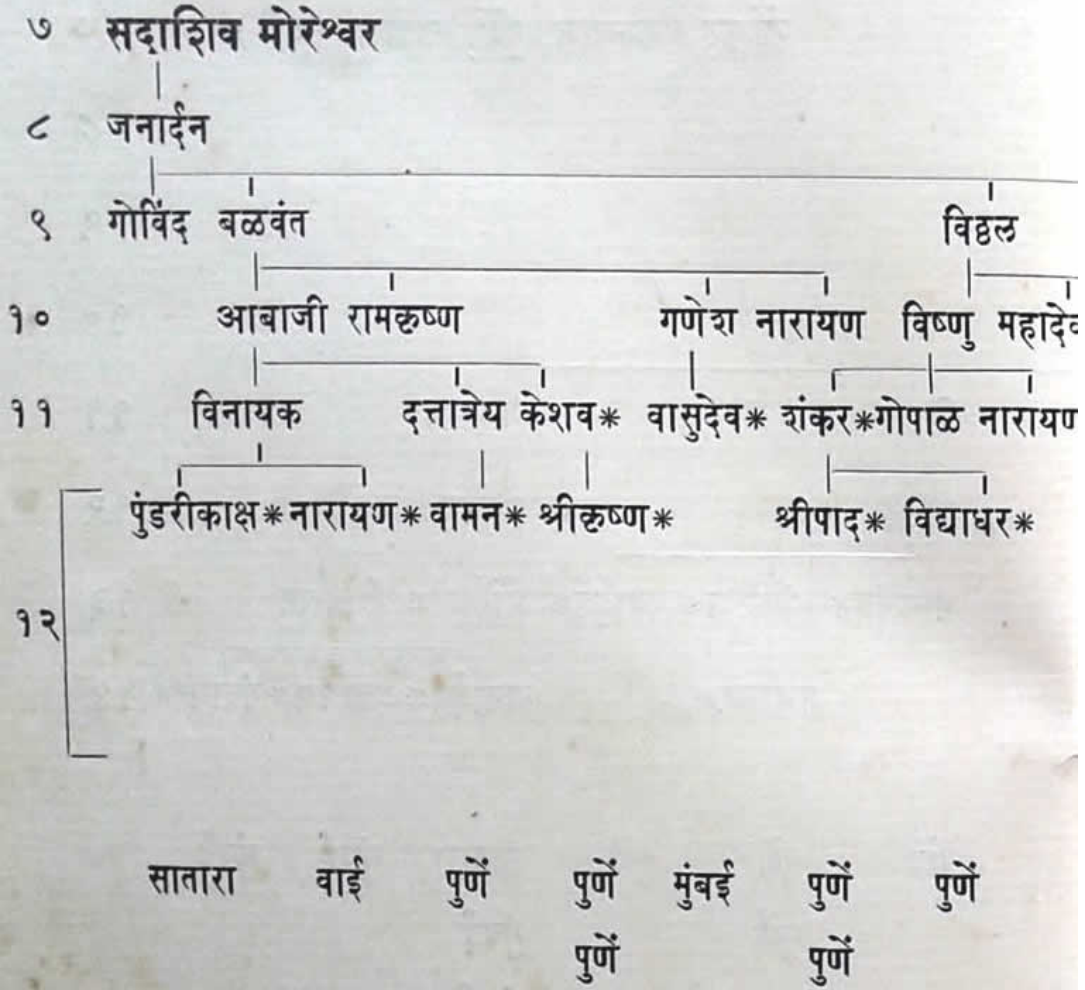 ७ सदाशिव मोरेश्वर
८ जनार्दन
९ गोविंद बळवंत विठ्ठल
१० आबाजी रामकृष्ण गणेश नारायण विष्णु महादेव
११ विनायक दत्तात्रेय केशव* वासुदेव* शंकर* गोपाळ नारायण
पुंडरीकाक्ष* नारायण* वामन* श्रीकृष्ण* श्रीपाद* विद्याधर*
१२
सातारा वाई पुणें पुणें मुंबई पुणें पुणें
पुणें पुणें